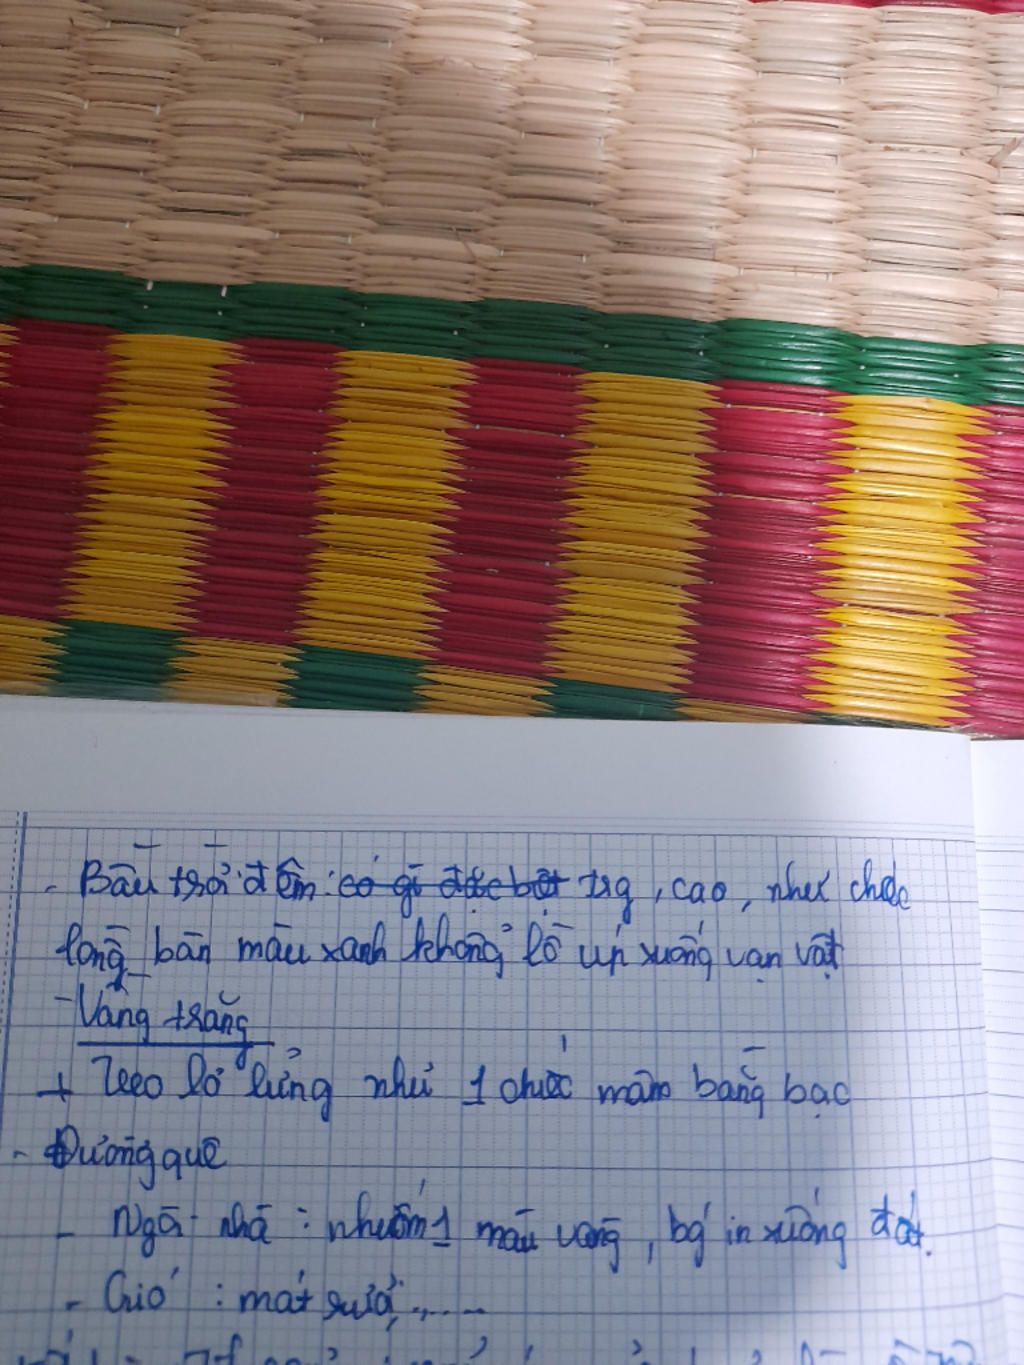 - Bầu trời đêm: có gì đặc biệt trg, cao, như chiếc
lồng bàn màu xanh khổng lồ úp xuống vạn vật
- Vầng trăng
+ Treo lơ lửng như 1 chiếc mâm bằng bạc
- Đường quê
- Ngôi nhà : nhuốm 1 màu vàng, bg in xuống đất.
- Gió : mát rượi,....